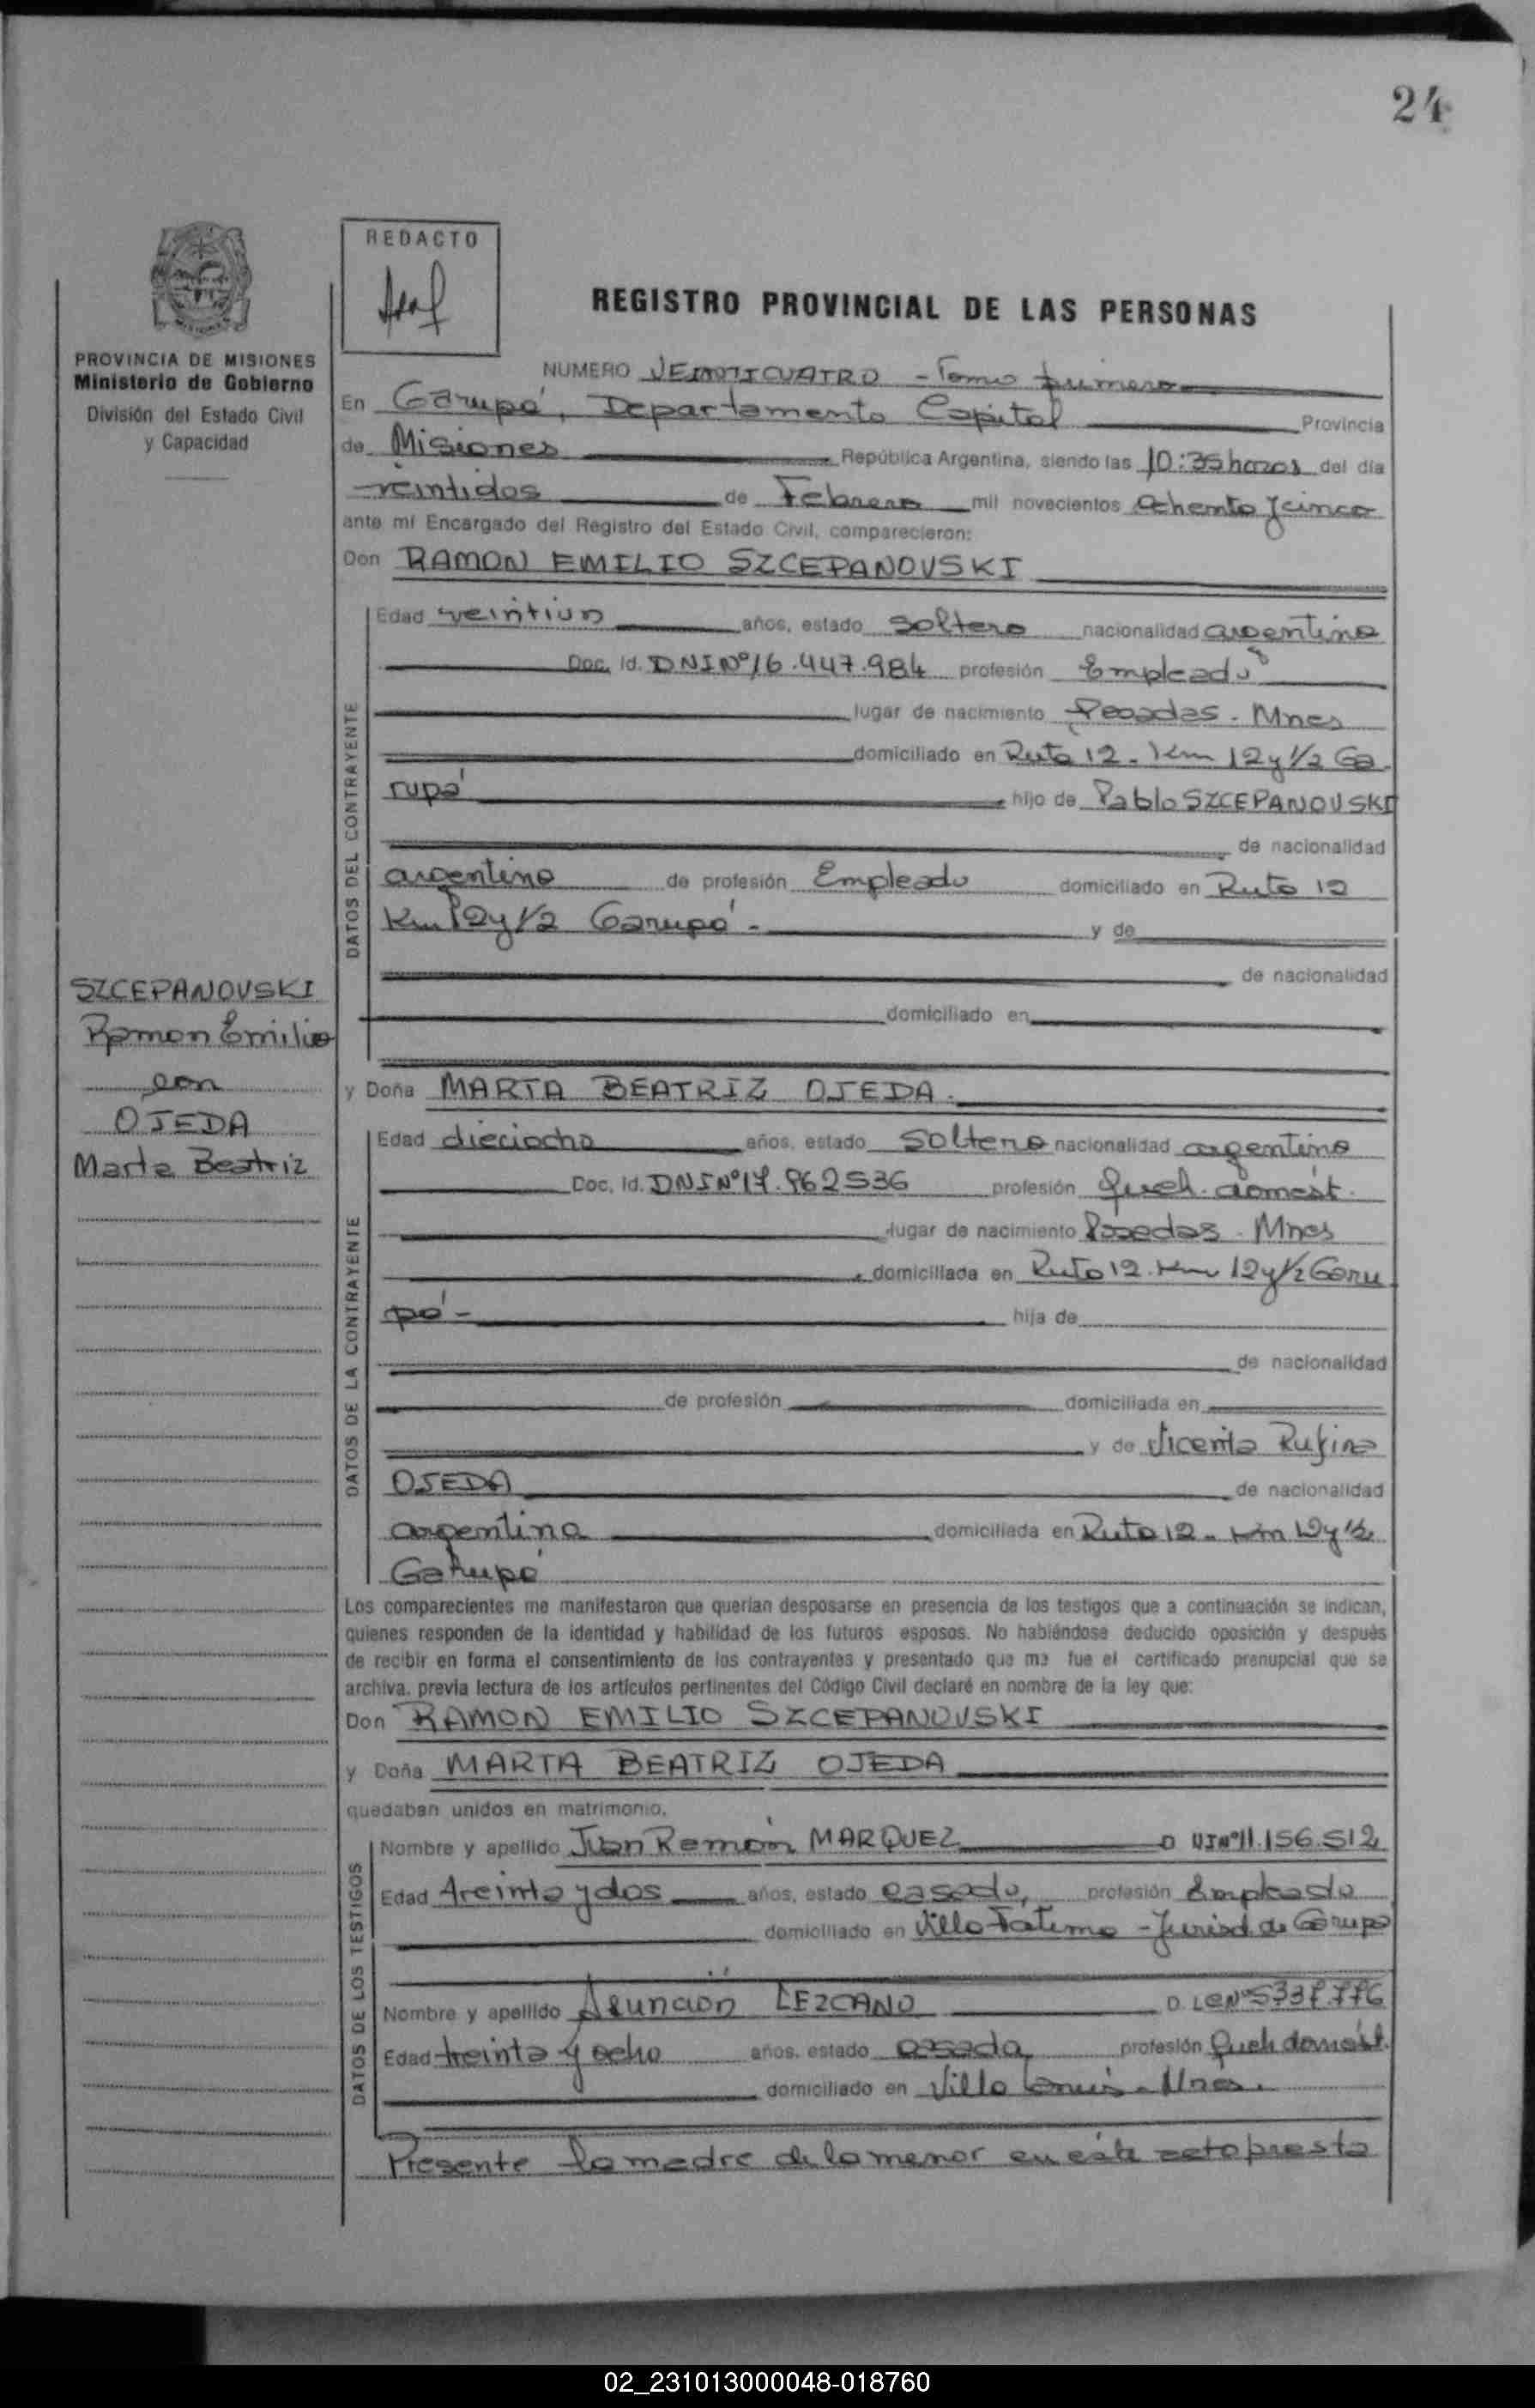 24
REDACTO
REGISTRO PROVINCIAL DE LAS PERSONAS
PROVINCIA DE MISIONES
Ministerio de Gobierno
División del Estado Civil
y Capacidad
NUMERO VEINTICUATRO - Tomo primero
En Garupá, Departamento Capital Provincia
de Misiones República Argentina, siendo las 10:35 horas del día
veintidos de Febrero mil novecientos ochenta y cinco
ante mí Encargado del Registro del Estado Civil, comparecieron:
Don RAMON EMILIO SZCEPANOVSKI
DATOS DEL CONTRAYENTE
Edad veintiun años, estado soltero nacionalidad argentina
Doc. Id. DNI Nº 16.447.984 profesión Empleado
lugar de nacimiento Posadas - Mnes
domiciliado en Ruta 12 - Km 12 y 1/2 Ga
rupá hijo de Pablo SZCEPANOVSKI
de nacionalidad
argentina de profesión Empleado domiciliado en Ruta 12
Km 12 y 1/2 Garupá - y de
de nacionalidad
domiciliado en
SZCEPANOVSKI
Ramon Emilio
con
OJEDA
Marta Beatriz
y Doña MARTA BEATRIZ OJEDA.
DATOS DE LA CONTRAYENTE
Edad dieciocho años, estado soltera nacionalidad argentina
Doc. Id. DNI Nº 17.962536 profesión Queh. domést.
lugar de nacimiento Posadas - Mnes
domiciliada en Ruta 12. Km 12 y 1/2 Garu
pá - hija de
de nacionalidad
de profesión domiciliada en
y de Vicenta Rufina
OJEDA de nacionalidad
argentina domiciliada en Ruta 12 - Km 12 y 1/2
Garupá
Los comparecientes me manifestaron que querían desposarse en presencia de los testigos que a continuación se indican,
quienes responden de la identidad y habilidad de los futuros esposos. No habiéndose deducido oposición y después
de recibir en forma el consentimiento de los contrayentes y presentado que me fue el certificado prenupcial que se
archiva, previa lectura de los artículos pertinentes del Código Civil declaré en nombre de la ley que:
Don RAMON EMILIO SZCEPANOVSKI
y Doña MARTA BEATRIZ OJEDA
quedaban unidos en matrimonio.
DATOS DE LOS TESTIGOS
Nombre y apellido Juan Ramón MARQUEZ D NI Nº 11.156.512
Edad treinta y dos años, estado casado, profesión Empleado
domiciliado en Villa Fátima - Jurisd. de Garupá
Nombre y apellido Asunción LEZCANO D. LC Nº
Edad treinta y ocho años, estado casada profesión Queh domést.
domiciliado en Villa - Mnes.
Presente la madre de la menor en este acto presta
02_231013000048-018760